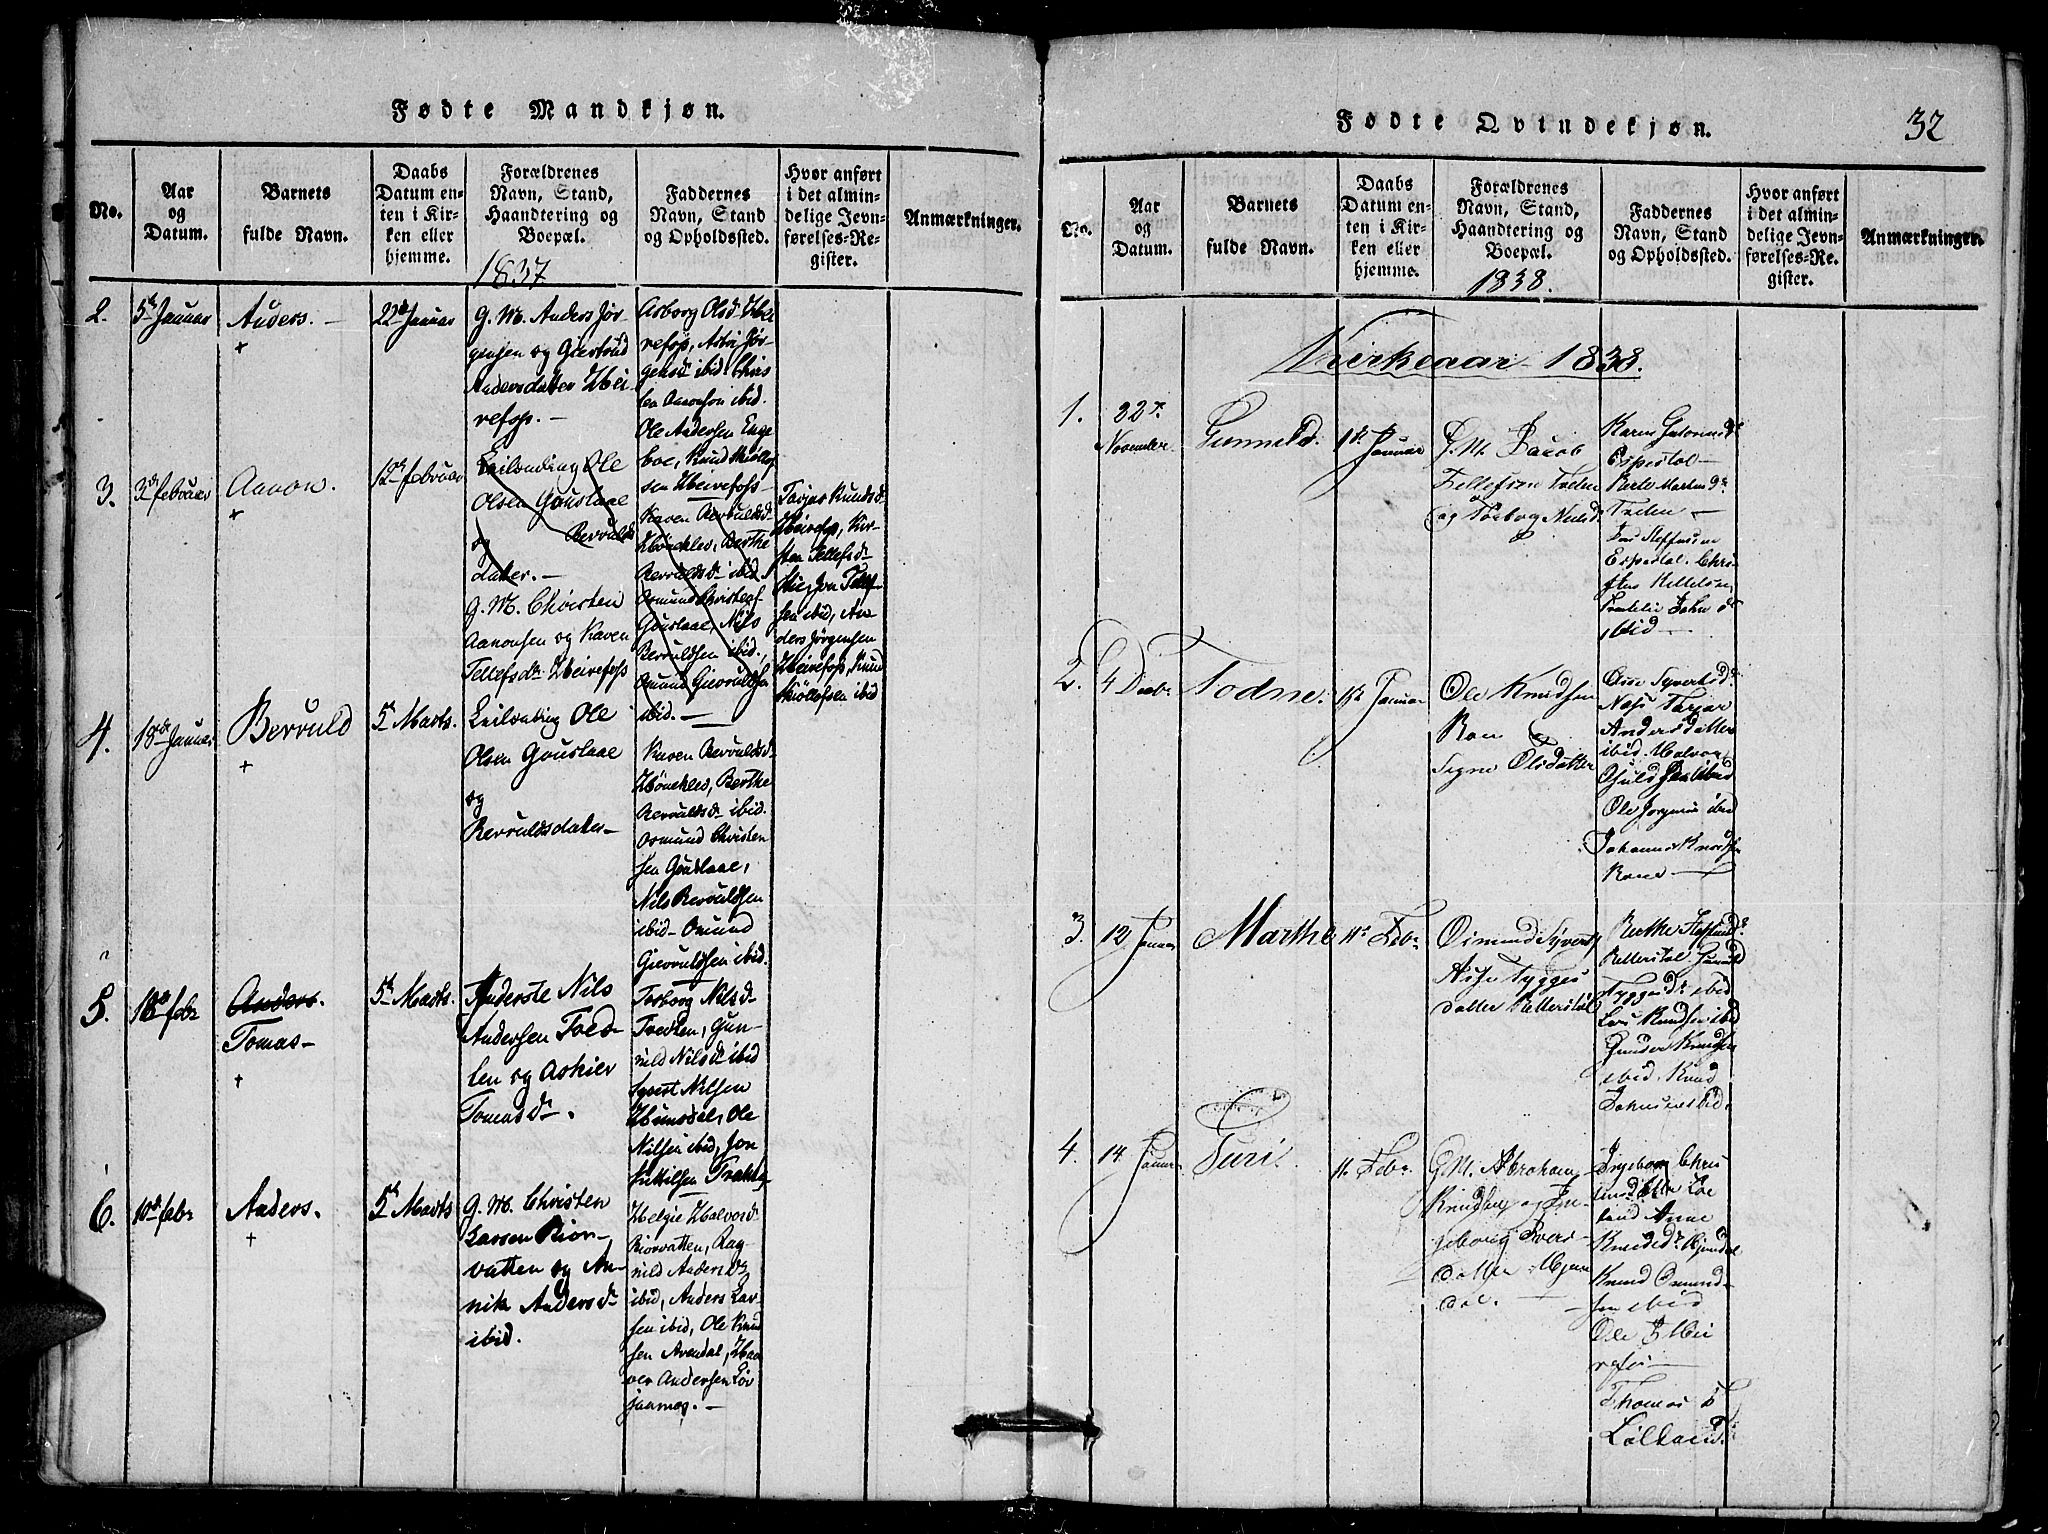 Fødte Mandkjøn.
No.
Aar
og
Datum.
Barnets
fulde Navn.
Daabs
Datum en-
ten i Kir-
ken eller
hjemme.
Forældrenes
Navn, Stand,
Haandtering og
Boepæl.
Faddernes
Navn, Stand
og Opholdssted.
Hvor anført
i det almin-
delige Jevn-
førelses-Re-
gister.
Anmærkninger.
1837
2.
5te Januar
Anders. -
+
22de Januar
G. M. Anders Jør
gensen og Giertrud
Andersdatter Hei
refoss. -
Asborg Olsd. Hei
refoss, Asbr Jør
gensd ibid. Chris
ten Aanonsen ibid.
Ole Andersen Enge
boe, Knud Kiøllof
sen Heirefoss -
3.
3de februar
Aanon.
+
12te februar
Leilending Ole
Olsen Gouslaae
og Bervulds
datter. -
G. M. Christen
Aanonsen og Karen
Tellefsdr. Heirefoss
Karen Bervuldsd.
Hönekles, Berthe
Bervuldsd. ibid.
Osmund Christens
Gouslaae, Nils
Bervuldsen ibid.,
Osmund Giervuldsen
ibid. -
Tarjer Knudsd.
Heirefoss, Kir-
sten Tellefsd.
Lie, Jon Tellef-
sen ibid, An
ders Jørgensen
Heirefoss, Knud
Kiøllofsen ibid
4.
18de Januar
Bervuld
+
5te Marts.
Leilending Ole
Olsen Gouslaae
og
Bervuldsdatter -
Karen Bervuldsd.
Hönekles, Berthe
Bervuldsdr. ibid.
Osmund Christen
sen Gouslaae,
Nils Bervuldsen
ibid - Osmund
Giervuldsen ibid.
5.
18de febr
Anders.
Tomas -
+
5te Marts.
Inderste Nils
Andersen Tved-
ten og Askier
Tomasdr.
Torborg Nilsd.
Tvedten, Gun-
nild Nilsdr ibid
Syvert Nilsen
Humsdal, Ole
Nilsen ibid, Jon
6.
10de febr
Anders.
+
5te Marts
G. M. Christen
Larsen Bior-
vatten og An-
nik Andersdr
ibid.
Helgie Halvorsd.
Biorvatten, Rag-
nild Andersdr
ibid, Anders Lar-
sen ibid, Ole Knud
sen Avendal, Haa
ver Andersen Løv
jaamog. -
Fødte Qvindekjøn.
32
No.
Aar
og
Datum.
Barnets
fulde Navn.
Daabs
Datum en-
ten i Kir-
ken eller
hjemme.
Forældrenes
Navn, Stand,
Haandtering og
Boepæl.
Faddernes
Navn, Stand
og Opholdssted.
Hvor anført
i det almin-
delige Jevn-
førelses-Re-
gister.
Anmærkninger.
1838.
Kirkeaar 1838.
1.
22de
November
Gunnild.
1ste Januar
G. M. Jacob
Tellefsen Treten
og Torborg Neilsd.
Espestøl -
Treten -
Espestøl. Chri-
ibid -
2.
4 Decbr
Todne.
1ste Januar
Ole Knudsen
Rane
Signe Olsdatter
Aase Syvertsd.
Ness Tarjer
Andersdatter
ibid. Halvor
Ole Jorgensen ibid
Johannes Knudsen
Rane -
3.
12
Januar
Marthe
11te Febr
Osmund Syverts
Asse Tygges
datter Retterstøl
Berthe
Retterstøl Gunuld
Tyggesdr. ibid
Lars Knudsen ibid
Gunder Knudsen
ibid. Knud
Johnsen ibid.
4.
14
Januar
Turi.
11. Febr
G. M. Abraham
Knudsen og In-
geborg Ivers-
datter Mjaa
dal.
Ingeborg Chris
Anne
Knudsdr.
Knud Osmund-
sen ibid
Ole J. Hei
refos -
Thomas T.